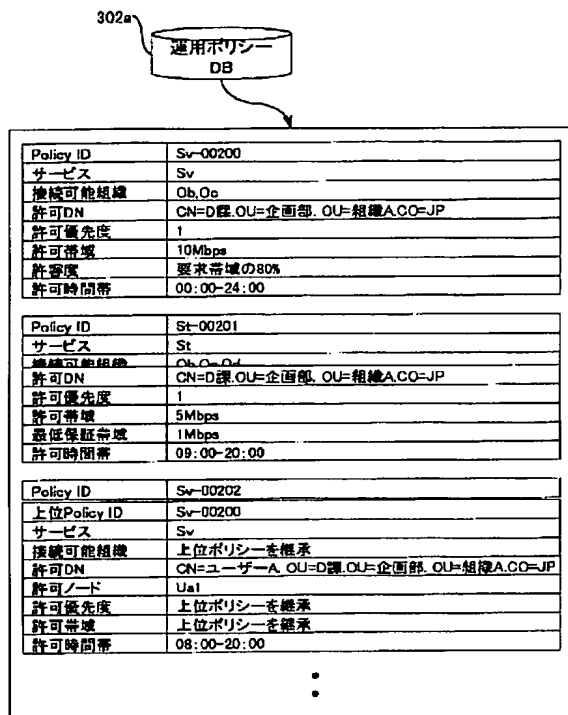 302a
運用ポリシー
DB
Policy ID Sv-00200
サービス Sv
接続可能組織 Ob,Oc
許可DN CN=D課.OU=企画部. OU=組織A.CO=JP
許可優先度 1
許可帯域 10Mbps
許容度 要求帯域の80%
許可時間帯 00:00-24:00
Policy ID St-00201
サービス St
接続可能組織 Ob,Oc,Od
許可DN CN=D課.OU=企画部. OU=組織A.CO=JP
許可優先度 1
許可帯域 5Mbps
最低保証帯域 1Mbps
許可時間帯 09:00-20:00
Policy ID Sv-00202
上位Policy ID Sv-00200
サービス Sv
接続可能組織 上位ポリシーを継承
許可DN CN=ユーザーA. OU=D課.OU=企画部. OU=組織A.CO=JP
許可ノード Ua1
許可優先度 上位ポリシーを継承
許可帯域 上位ポリシーを継承
許可時間帯 08:00-20:00